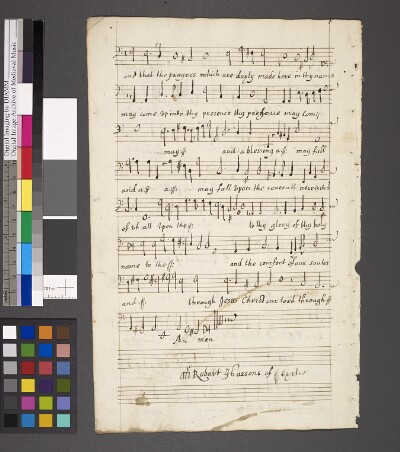 Digital Imaging by DIAMM
Digital Image Archive of Medieval Music
and that the prayers which are dayly made here in thy name
may come upinto thy presence thy presence may come
may ij and a blessing ij may fall
and ij ij may fall upon the severall
of us all upon the ij to thy glory of thy holy
name to the ij and the comfort of our soules
and ij through Jesus Christ our lord through ij
A men
Mr Robart Parsons of